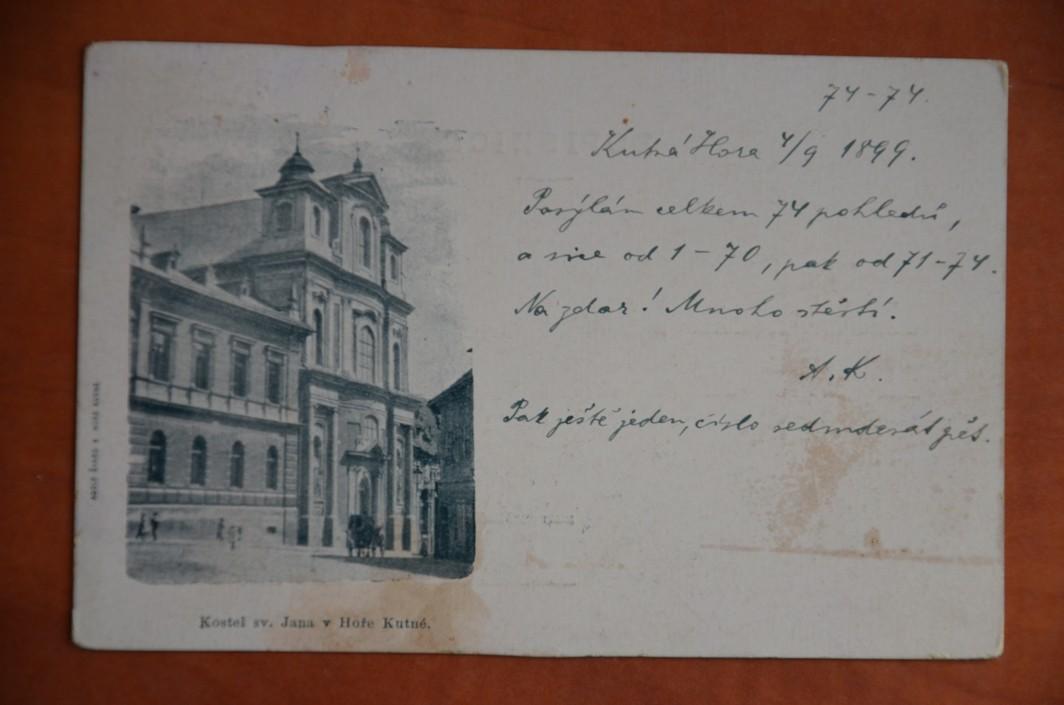 74-74.
Kutná Hora 4/9 1899.
Posýlám celkem 74 pohledů,
a sice od 1-70, pak od 71-74.
Na zdar! Mnoho štěstí.
A. K.
Pak ještě jeden, číslo sedmdesát pět.
Kostel sv. Jana v Hoře Kutné.